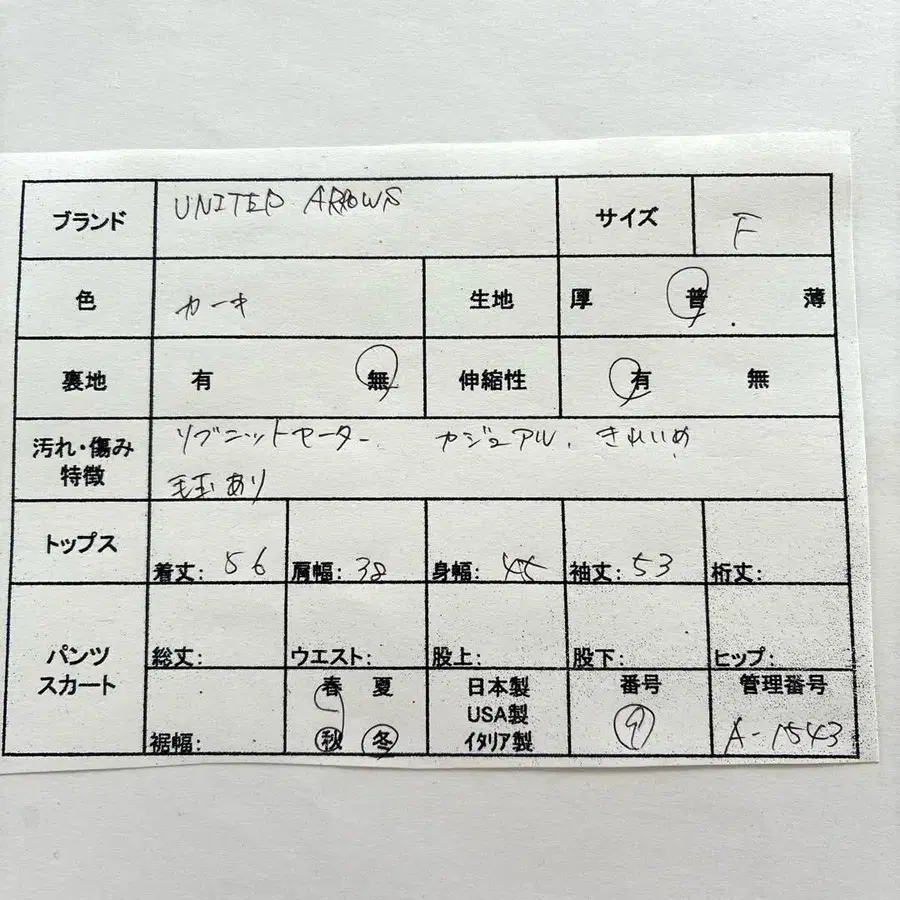 ブランド UNITED ARROWS サイズ F
色 カーキ 生地 厚 普 薄
裏地 有 無 伸縮性 有 無
汚れ・傷み 特徴 リブニットセーター、 カジュアル、 きれいめ
毛玉あり
トップス 着丈: 56 肩幅: 38 身幅: 45 袖丈: 53 裄丈:
パンツ スカート 総丈: ウエスト: 股上: 股下: ヒップ:
裾幅: 春 夏 秋 冬 日本製 USA製 イタリア製 番号 管理番号 A-1543